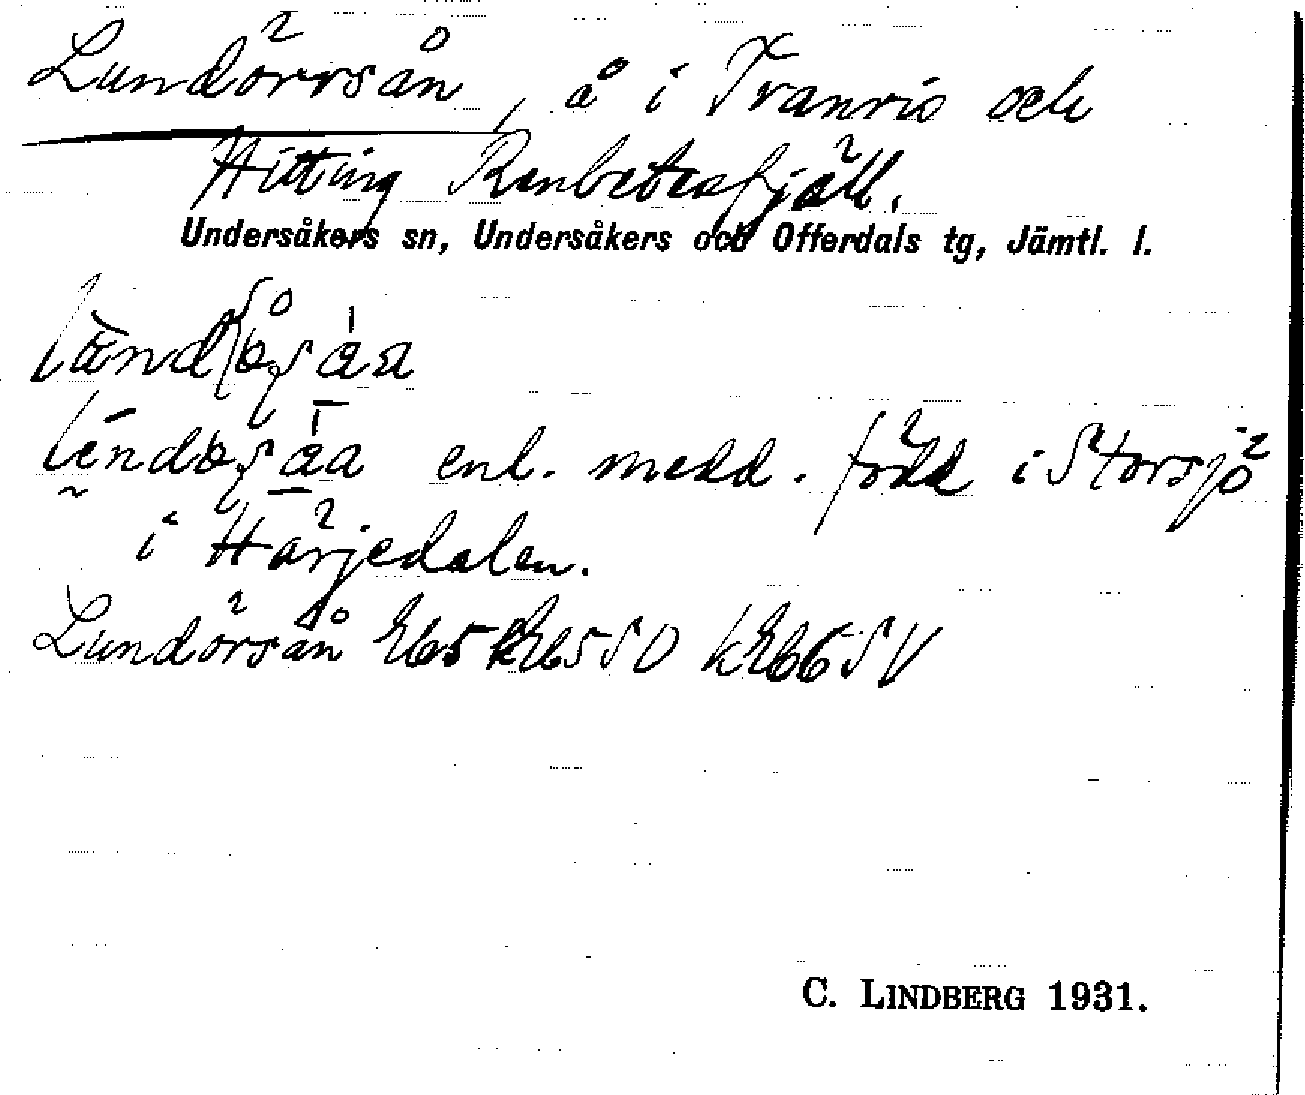 Lundörrsån, å i Tranris och
Hitting Renbetesfjäll.
Undersåkers sn, Undersåkers och Offerdals tg, Jämtl. l.
enl. medd. född i Storsjö
i Härjedalen.
Lundörsån
C. LINDBERG 1931.